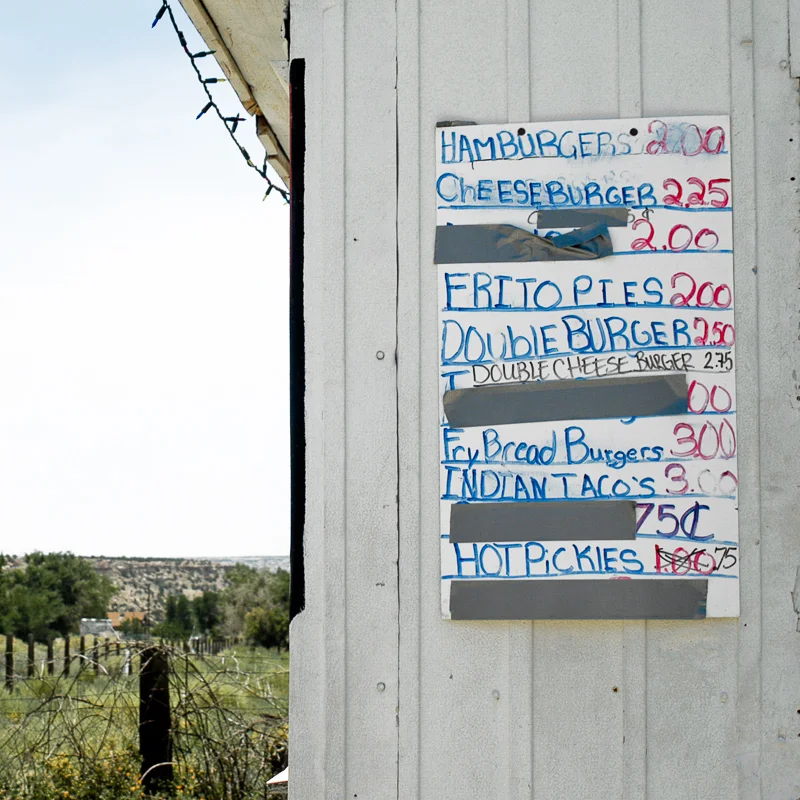 HAMBURGERS 2.00
CHEESEBURGER 2.25
2.00
FRITO PIES 2.00
DOUBLE BURGER 2.50
DOUBLE CHEESE BURGER 2.75
00
Fry Bread Burgers 3.00
INDIAN TACO'S 3.00
75¢
HOT PiCKIES .75